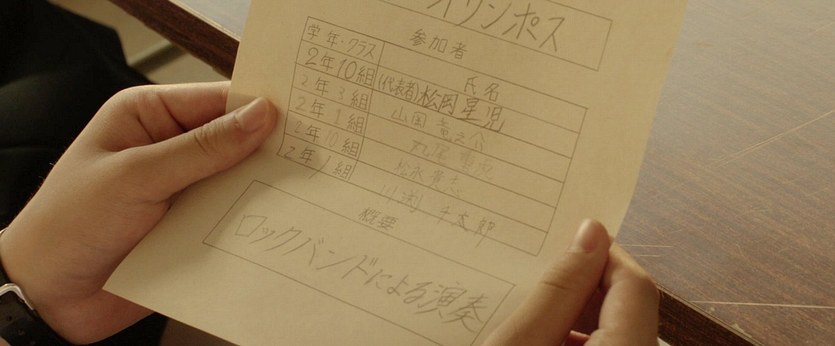 オリンポス
参加者
学年・クラス 氏名
2年10組 (代表者)松岡星児
2年3組 山国竜之介
2年1組
2年10組 松永貴志
2年1組
概要
ロックバンドによる演奏